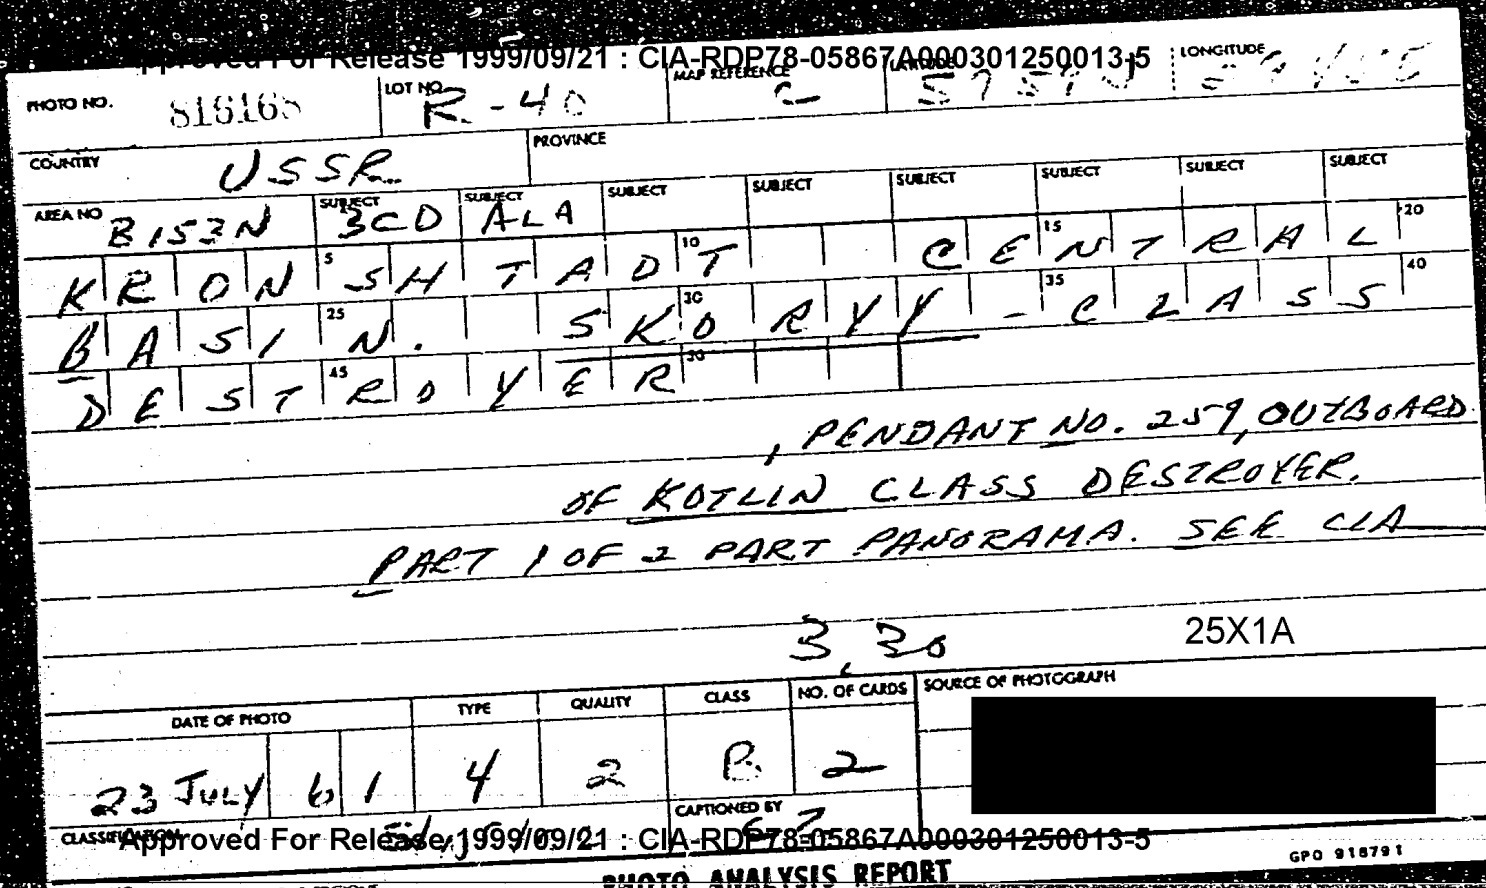 Approved For Release 1999/09/21 : CIA-RDP78-05867A000301250013-5
PHOTO NO. 816168 LOT NO. R-40 MAP REFERENCE C LATITUDE 5959N LONGITUDE
COUNTRY USSR PROVINCE
AREA NO B152N SUBJECT 3CD SUBJECT ALA SUBJECT SUBJECT SUBJECT SUBJECT SUBJECT SUBJECT
5 10 15 20
KRONSHTADT CENTRAL
25 30 35 40
BASIN. SKORYY-CLASS
45 50
DESTROYER
, PENDANT NO. 259, OUTBOARD
OF KOTLIN CLASS DESTROYER.
PART 1 OF 2 PART PANORAMA. SEE CIA
3,30 25X1A
DATE OF PHOTO TYPE QUALITY CLASS NO. OF CARDS SOURCE OF PHOTOGRAPH
23 JULY 61 4 2 B 2
CLASSIFICATION CAPTIONED BY
Approved For Release 1999/09/21 : CIA-RDP78-05867A000301250013-5
GPO 918791
PHOTO ANALYSIS REPORT